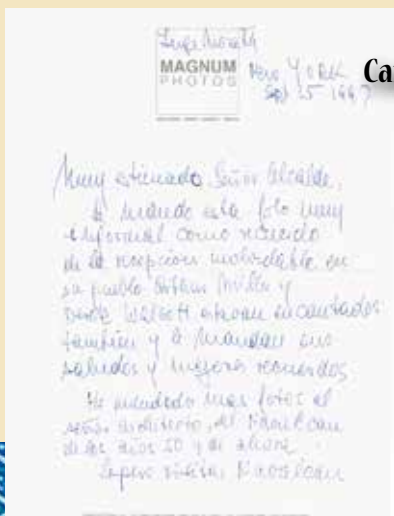 Inge Morath
MAGNUM
PHOTOS
New York
Sept 25 1997
Ca
Muy estimado Señor Alcalde,
le mando esta foto muy
informal como recuerdo
de la recepción inolvidable en
su pueblo
y
estaban encantados
también y le mandan sus
saludos y mejores recuerdos
He mandado mas fotos al
señor architecto, del
de los años 50 y de ahora
Espero visitar